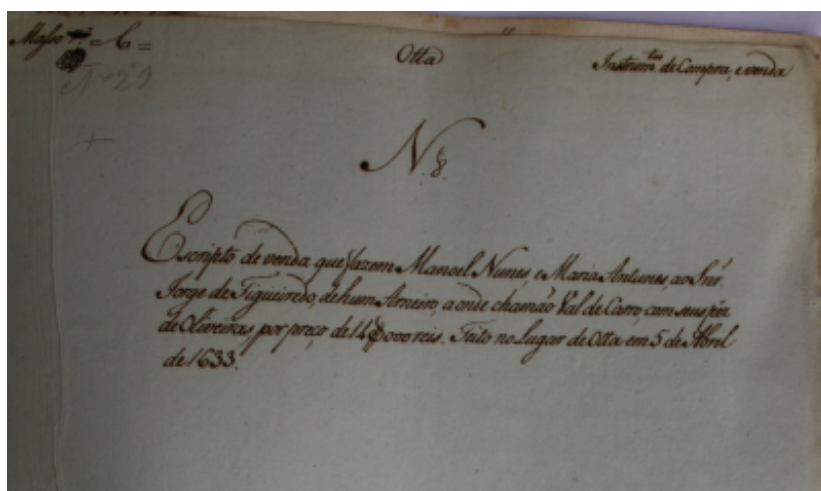 Masso = 6 =
Nº 23
Otta
Instrum.tos de Compra, e venda
N. 8.
Escripto de venda que fazem Manoel Nunes, e Maria Antunes, ao Snr.
Jorge de Figueiredo, de hum Arneiro, a onde chamão Val de Carro, com seus pés
de Oliveiras, por preço de 14$000 reis. Feito no Lugar de Otta em 5 de Abril
de 1633.